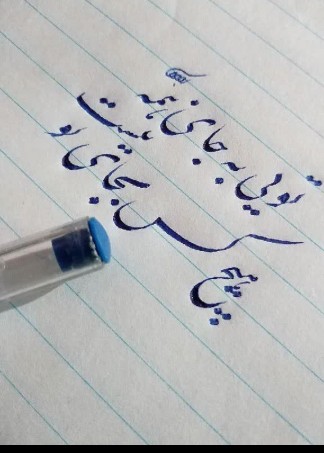 تویی به جای همه
هیچ کس بجای تو نیست